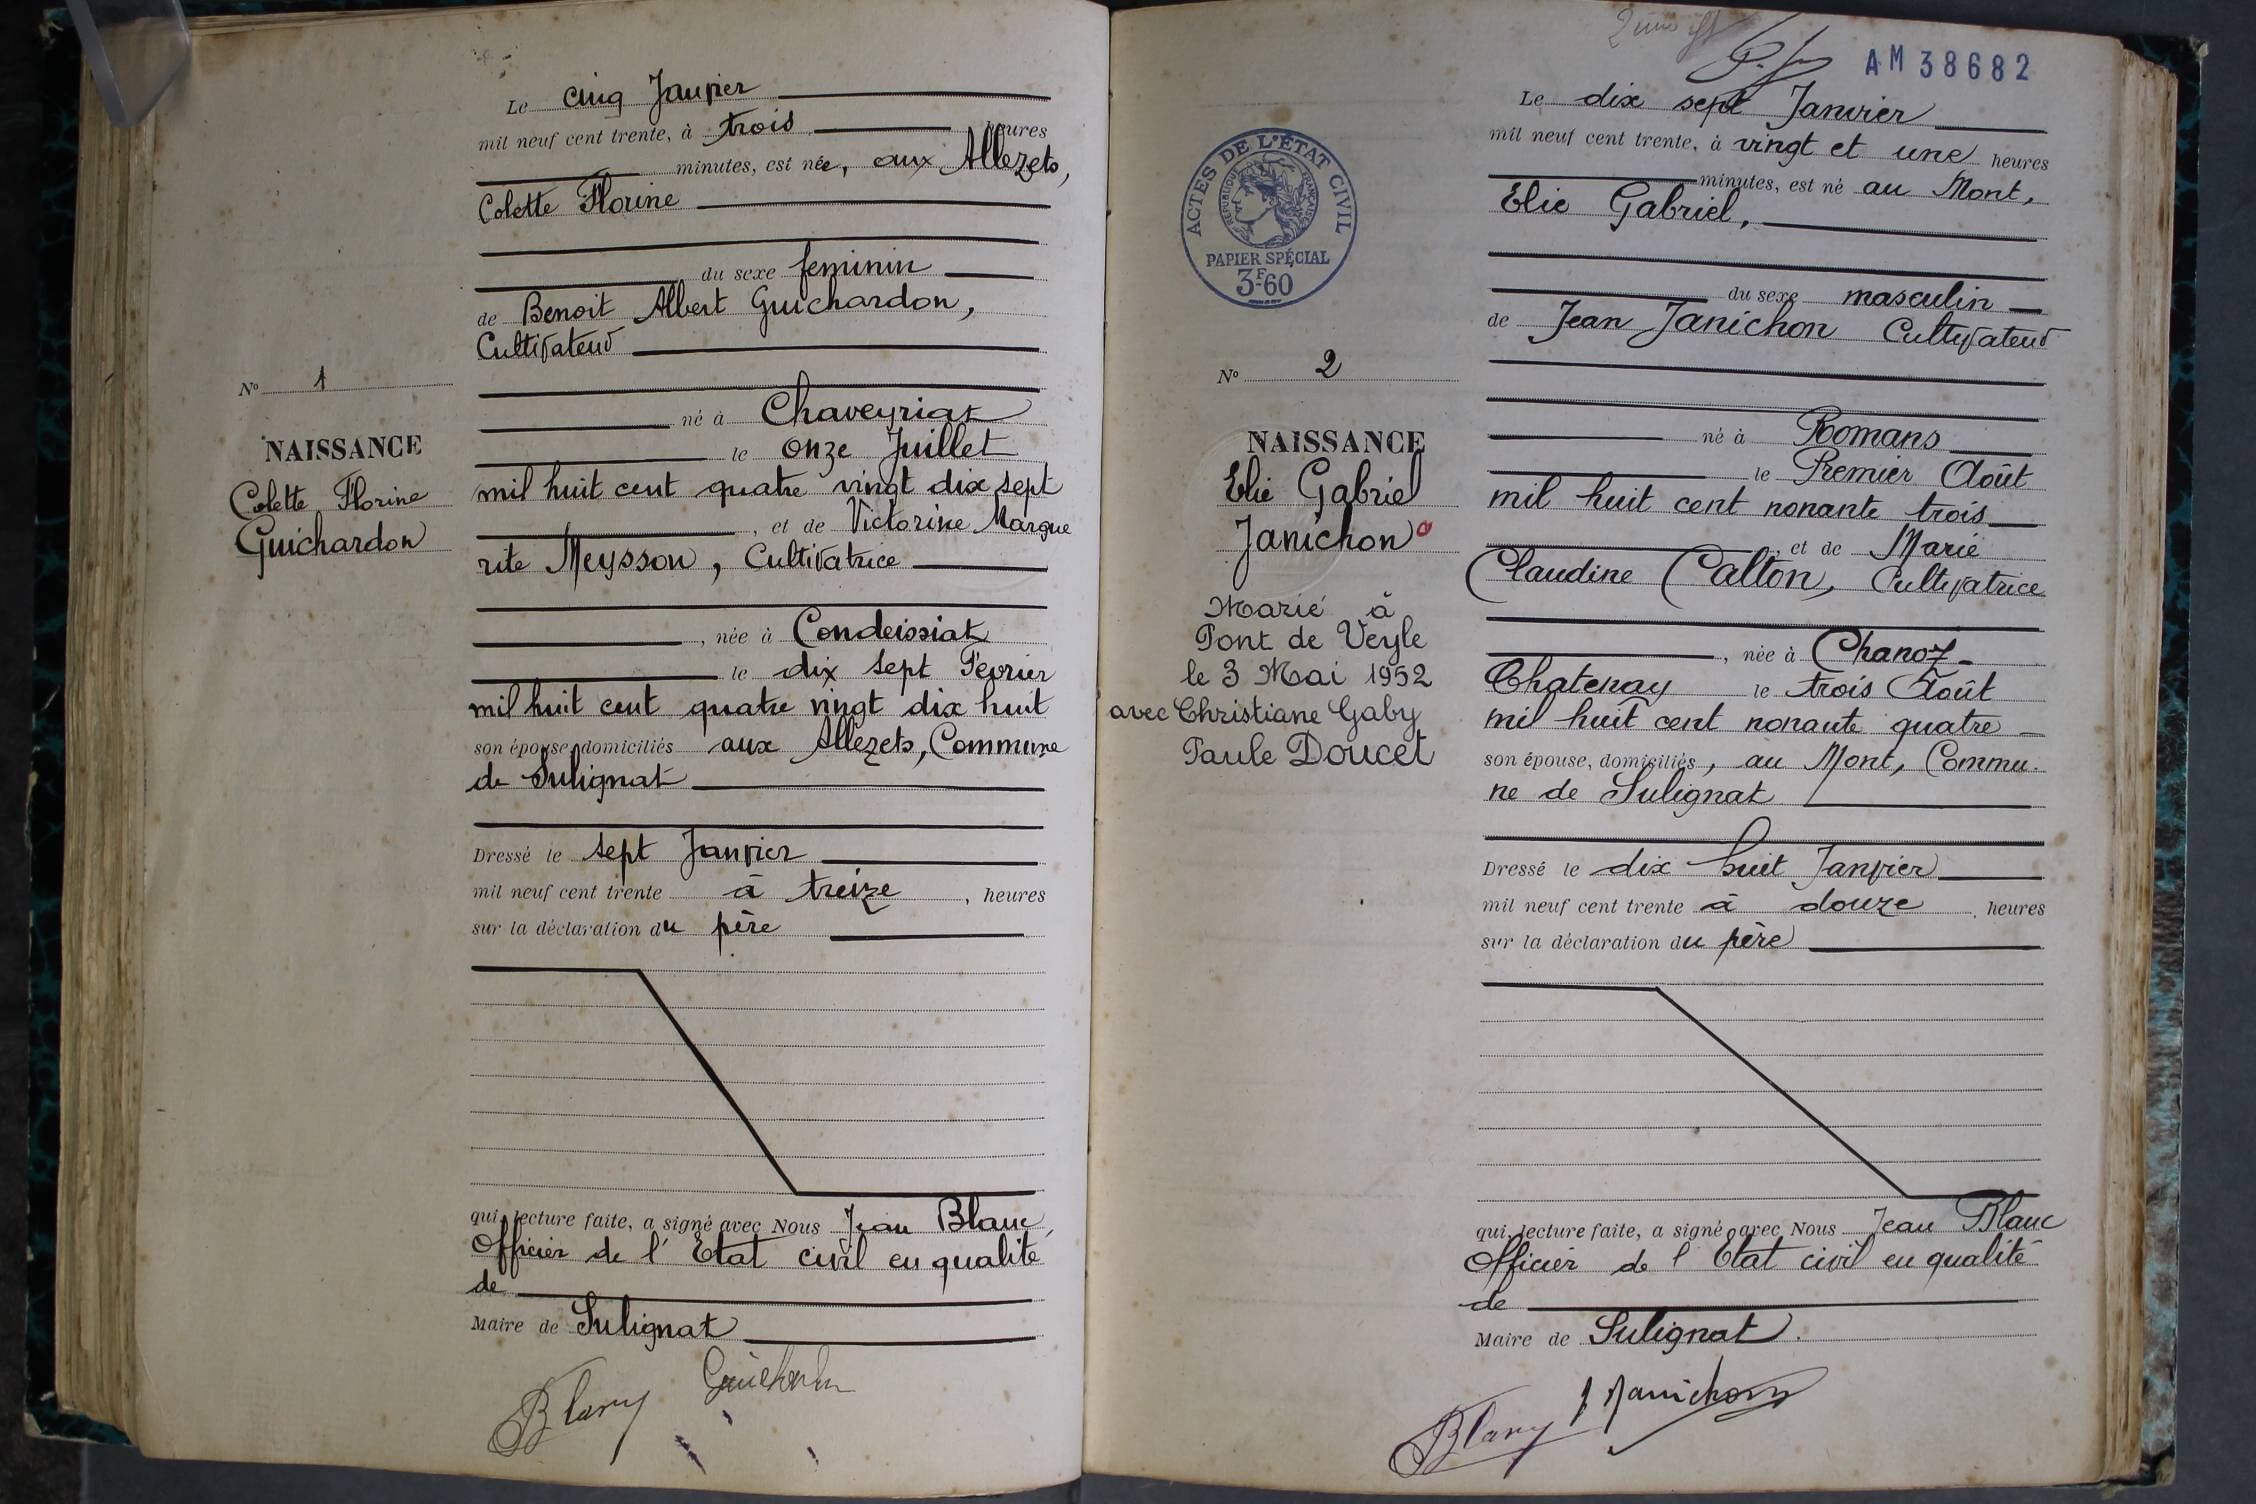 Le cinq Janvier
mil neuf cent trente, à trois heures
minutes, est née, aux Allezets,
Colette Florine
du sexe feminin
de Benoit Albert Guichardon,
Cultivateur
né à Chaveyriat
le onze Juillet
mil huit cent quatre vingt dix sept
, et de Victorine Margue
rite Meysson, Cultivatrice
, née à Condeissiat
le dix sept Février
mil huit cent quatre vingt dix huit
son épouse, domiciliés aux Allezets, Commune
de Sulignat
Dressé le sept Janvier
mil neuf cent trente à treize, heures
sur la déclaration du père
qui, lecture faite, a signé avec Nous Jean Blanc,
Officier de l'Etat civil en qualité
de
Maire de Sulignat
Blanc Guichardon
N° 1
NAISSANCE
Colette Florine
Guichardon
AM 38682
Le dix sept Janvier
mil neuf cent trente, à vingt et une heures
minutes, est né au Mont,
Elie Gabriel,
du sexe masculin
de Jean Janichon Cultivateur
né à Romans
le Premier Août
mil huit cent nonante trois
, et de Marie
Claudine Calton, Cultivatrice
, née à Chanoz-
Chatenay le trois Août
mil huit cent nonante quatre
son épouse, domiciliés, au Mont, Commu-
ne de Sulignat
Dressé le dix huit Janvier
mil neuf cent trente à douze heures
sur la déclaration du père
qui, lecture faite, a signé avec Nous Jean Blanc
Officier de l Etat civil en qualité
de
Maire de Sulignat.
Blanc J Janichon
ACTES DE L'ÉTAT CIVIL
RÉPUBLIQUE FRANÇAISE
PAPIER SPÉCIAL
3F60
N° 2
NAISSANCE
Elie Gabriel
Janichon
Marié à
Pont de Veyle
le 3 Mai 1952
avec Christiane Gaby
Paule Doucet